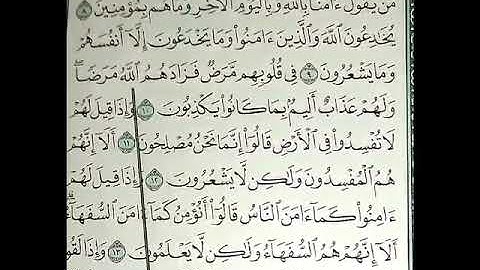 مَن يَقُولُ ءَامَنَّا بِٱللَّهِ وَبِٱلْيَوْمِ ٱلْءَاخِرِ وَمَا هُم بِمُؤْمِنِينَ ٨
يُخَٰدِعُونَ ٱللَّهَ وَٱلَّذِينَ ءَامَنُوا۟ وَمَا يَخْدَعُونَ إِلَّآ أَنفُسَهُمْ
وَمَا يَشْعُرُونَ ٩ فِى قُلُوبِهِم مَّرَضٌ فَزَادَهُمُ ٱللَّهُ مَرَضًا ۖ
وَلَهُمْ عَذَابٌ أَلِيمٌۢ بِمَا كَانُوا۟ يَكْذِبُونَ ١٠ وَإِذَا قِيلَ لَهُمْ
لَا تُفْسِدُوا۟ فِى ٱلْأَرْضِ قَالُوٓا۟ إِنَّمَا نَحْنُ مُصْلِحُونَ ١١ أَلَآ إِنَّهُمْ
هُمُ ٱلْمُفْسِدُونَ وَلَٰكِن لَّا يَشْعُرُونَ ١٢ وَإِذَا قِيلَ لَهُمْ
ءَامِنُوا۟ كَمَآ ءَامَنَ ٱلنَّاسُ قَالُوٓا۟ أَنُؤْمِنُ كَمَآ ءَامَنَ ٱلسُّفَهَآءُ ۗ
أَلَآ إِنَّهُمْ هُمُ ٱلسُّفَهَآءُ وَلَٰكِن لَّا يَعْلَمُونَ ١٣ وَإِذَا لَقُوا۟